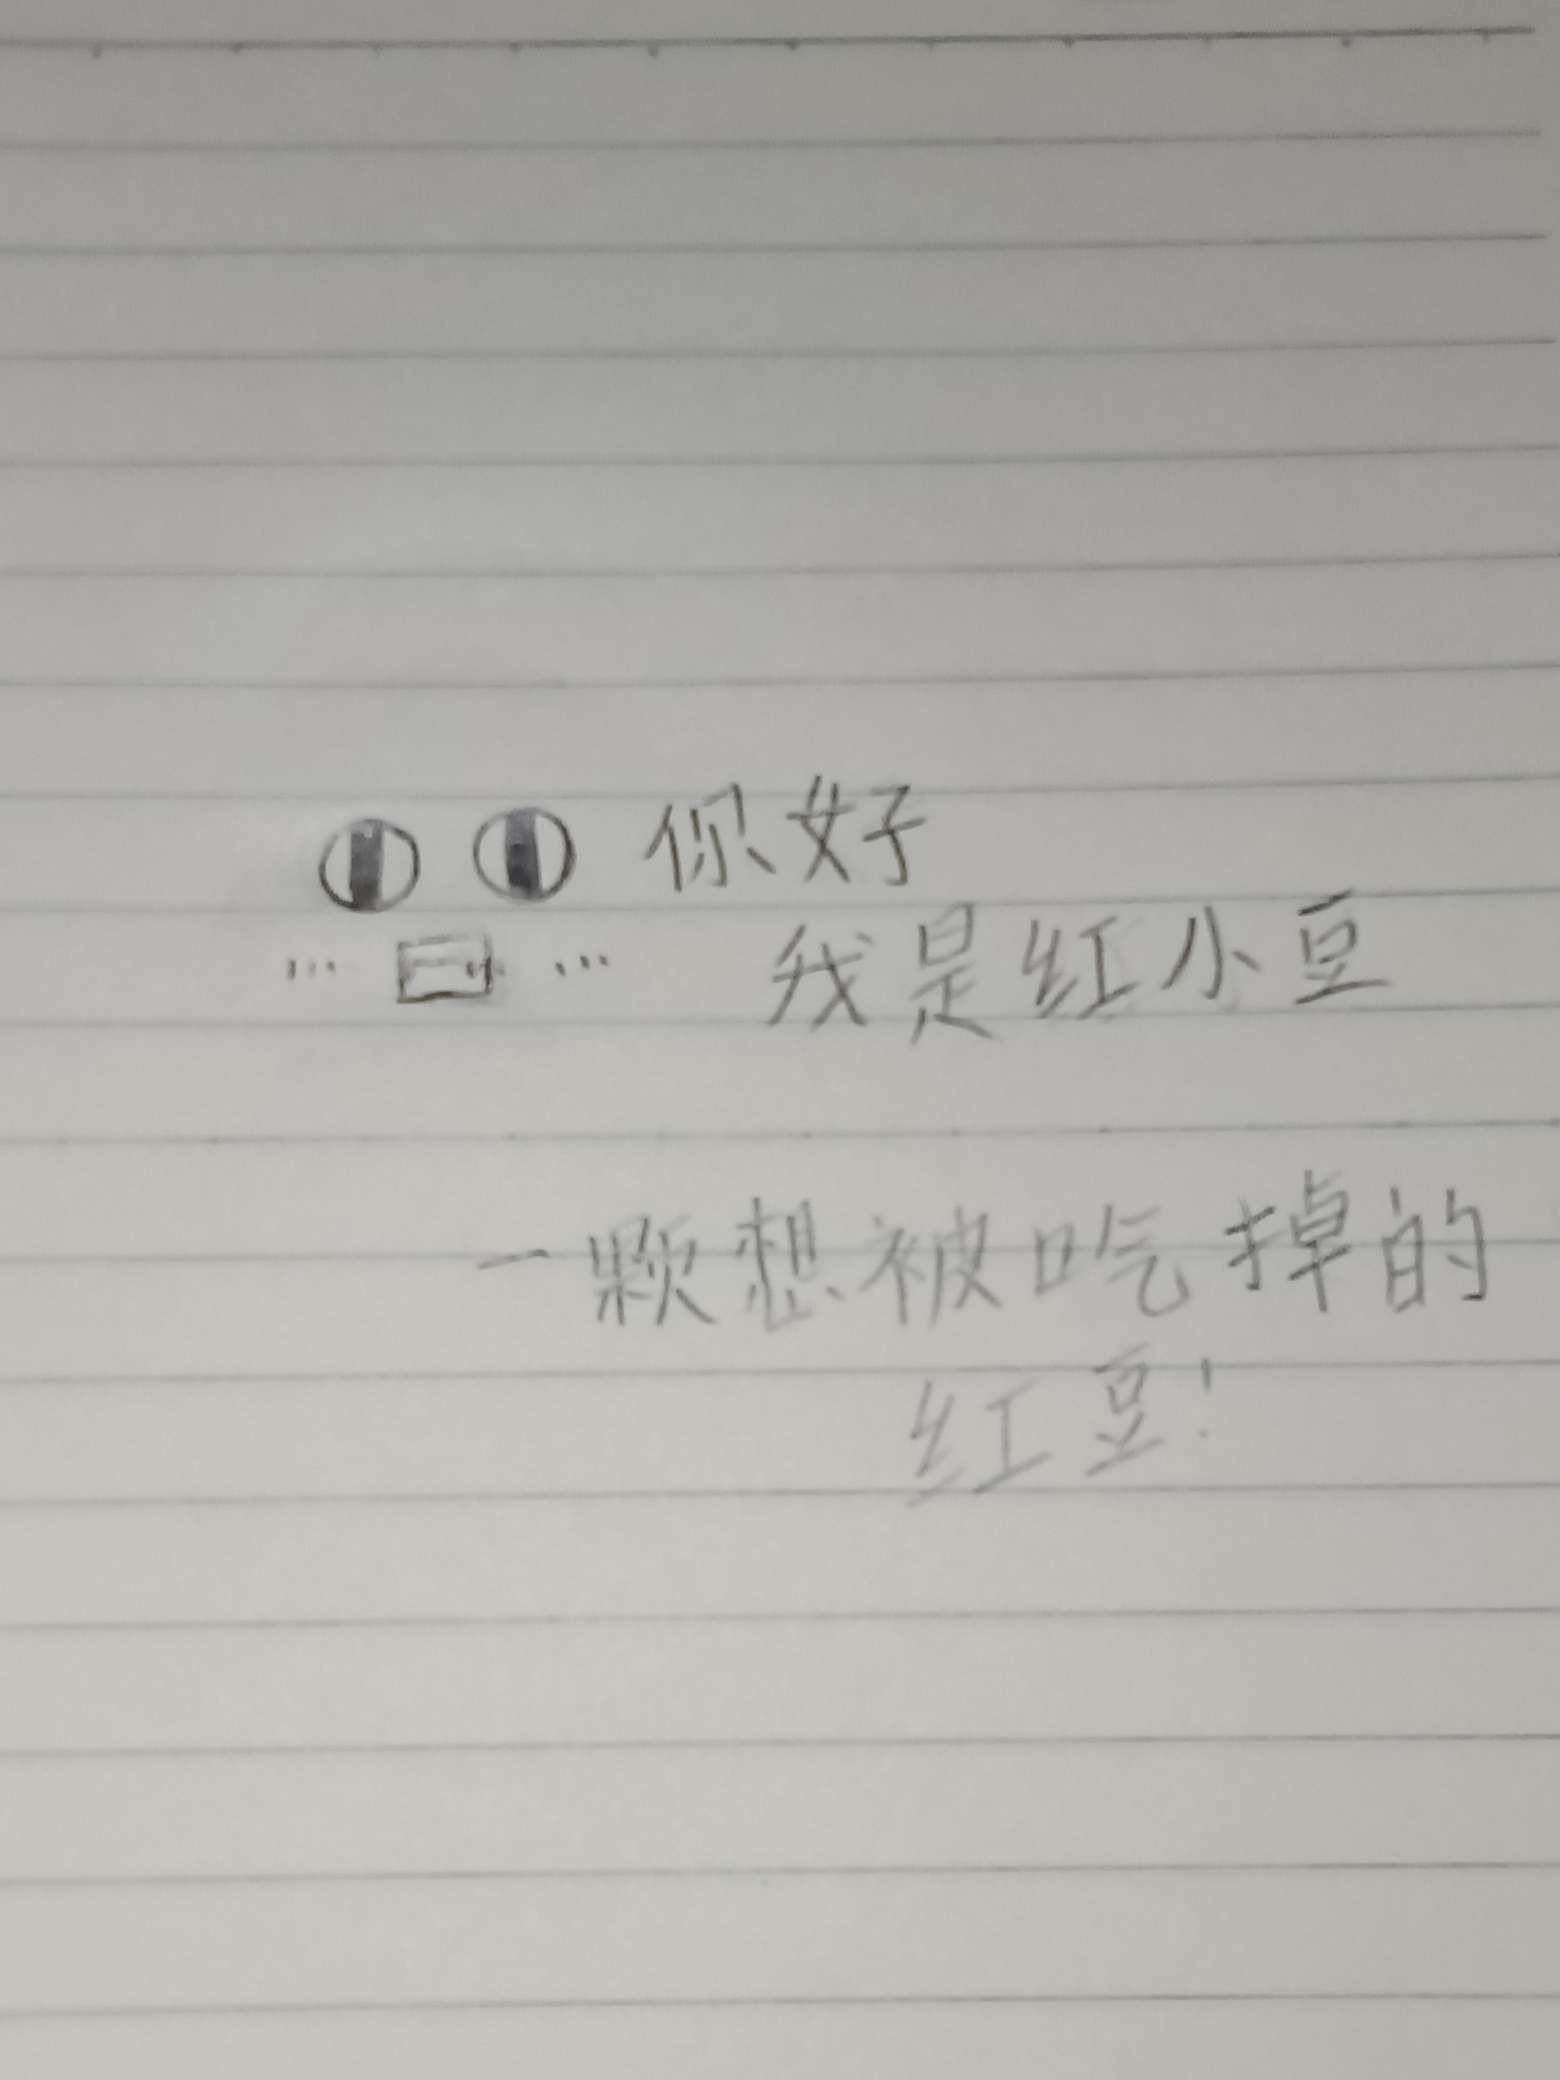 你好
我是红小豆
一颗想被吃掉的
红豆!